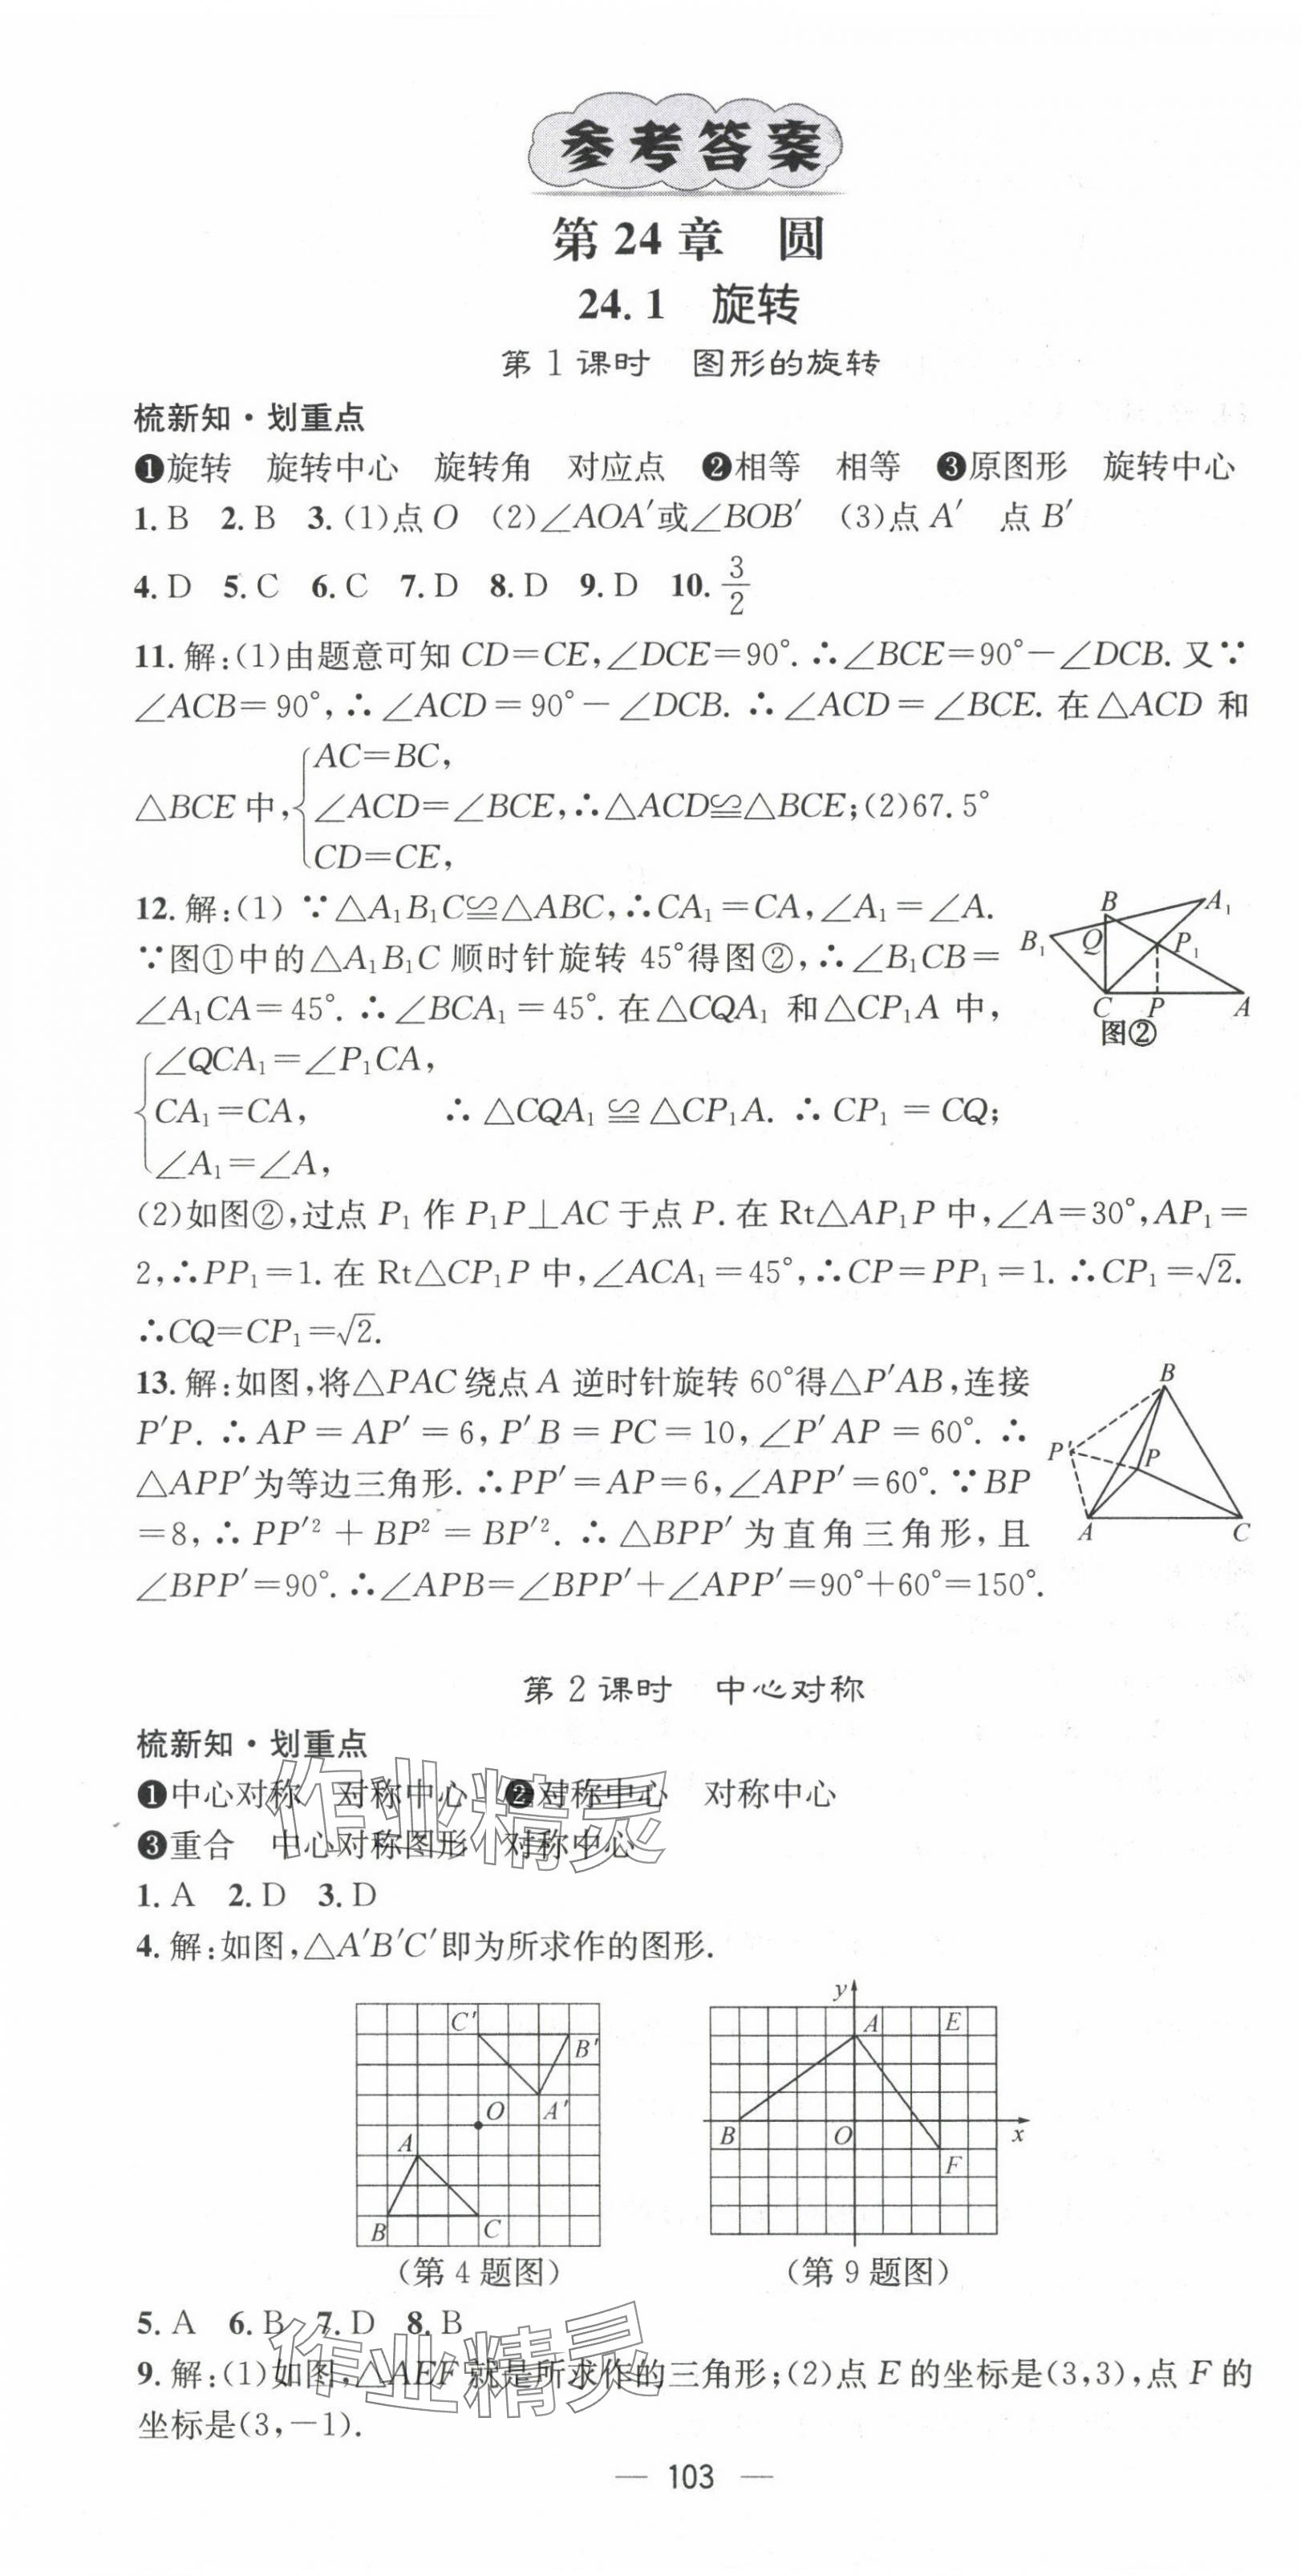 参考答案
第24章 圆
24.1 旋转
第1课时 图形的旋转
梳新知·划重点
❶旋转 旋转中心 旋转角 对应点 ❷相等 相等 ❸原图形 旋转中心
1. B 2. B 3. (1)点O (2)∠AOA′或∠BOB′ (3)点A′ 点B′
4. D 5. C 6. C 7. D 8. D 9. D 10. 3/2
11. 解:(1)由题意可知CD=CE,∠DCE=90°. ∴∠BCE=90°-∠DCB. 又∵
∠ACB=90°,∴∠ACD=90°-∠DCB. ∴∠ACD=∠BCE. 在△ACD和
AC=BC,
△BCE中,{∠ACD=∠BCE,∴△ACD≌△BCE;(2)67.5°
CD=CE,
12. 解:(1)∵△A₁B₁C≌△ABC,∴CA₁=CA,∠A₁=∠A.
∵图①中的△A₁B₁C顺时针旋转45°得图②,∴∠B₁CB=
∠A₁CA=45°. ∴∠BCA₁=45°. 在△CQA₁和△CP₁A中,
∠QCA₁=∠P₁CA,
CA₁=CA, ∴△CQA₁≌△CP₁A. ∴CP₁=CQ;
∠A₁=∠A,
B A₁
B₁ Q P₁
C P A
图②
(2)如图②,过点P₁作P₁P⊥AC于点P. 在Rt△AP₁P中,∠A=30°,AP₁=
2,∴PP₁=1. 在Rt△CP₁P中,∠ACA₁=45°,∴CP=PP₁=1. ∴CP₁=√2.
∴CQ=CP₁=√2.
13. 解:如图,将△PAC绕点A逆时针旋转60°得△P′AB,连接
P′P. ∴AP=AP′=6,P′B=PC=10,∠P′AP=60°. ∴
△APP′为等边三角形. ∴PP′=AP=6,∠APP′=60°. ∵BP
=8,∴PP′²+BP²=BP′². ∴△BPP′为直角三角形,且
∠BPP′=90°. ∴∠APB=∠BPP′+∠APP′=90°+60°=150°.
B
P′ P
A C
第2课时 中心对称
梳新知·划重点
❶中心对称 对称中心 ❷对称中心 对称中心
❸重合 中心对称图形 对称中心
作业精灵
1. A 2. D 3. D
4. 解:如图,△A′B′C′即为所求作的图形.
C′ B′
O A′
A
B C
(第4题图)
y
A E
B O x
F
(第9题图)
5. A 6. B 7. D 8. B
作业精灵
9. 解:(1)如图,△AEF就是所求作的三角形;(2)点E的坐标是(3,3),点F的
坐标是(3,-1).
— 103 —